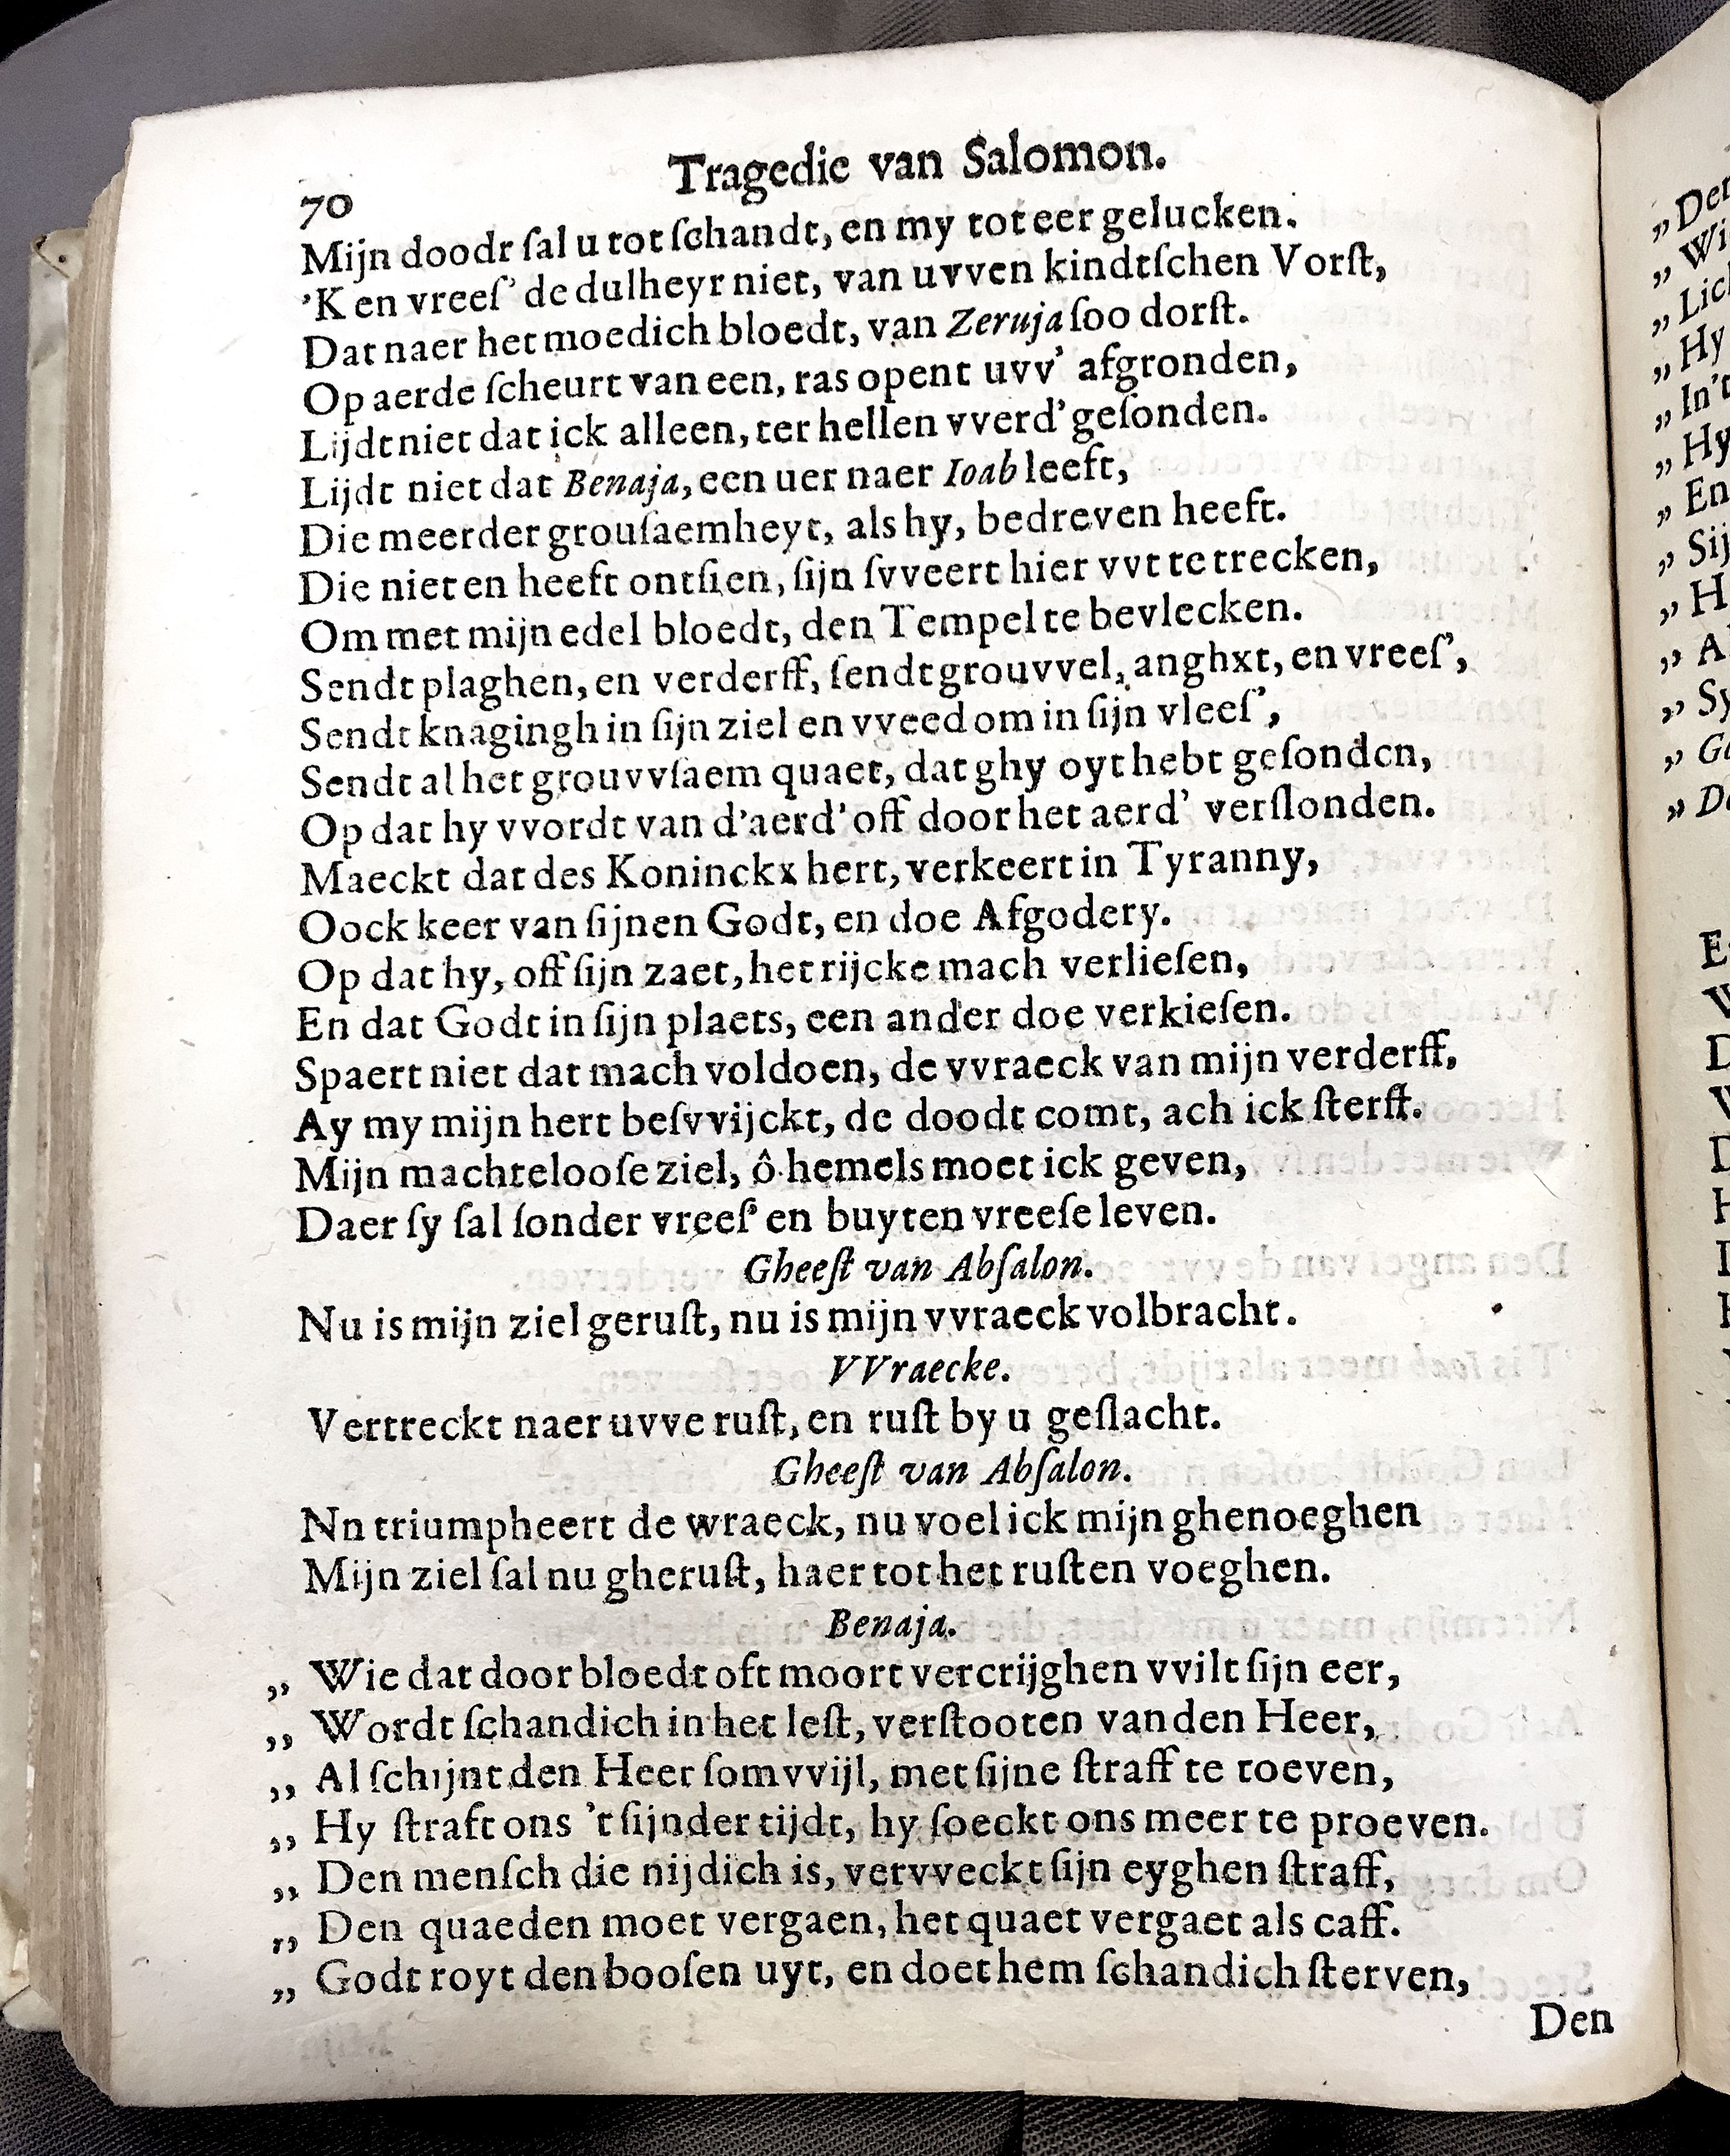 70
Tragedie van Salomon.
Mijn doodt ſal u tot ſchandt, en my tot eer gelucken.
'K en vreeſ' de dulheyt niet, van uvven kindtſchen Vorſt,
Dat naer het moedich bloedt, van Zeruja ſoo dorſt.
Op aerde ſcheurt van een, ras opent uvv' afgronden,
Lijdt niet dat ick alleen, ter hellen vverd' geſonden.
Lijdt niet dat Benaja, een uer naer Ioab leeft,
Die meerder grouſaemheyt, als hy, bedreven heeft.
Die niet en heeft ontſien, ſijn ſvveert hier vvt te trecken,
Om met mijn edel bloedt, den Tempel te bevlecken.
Sendt plaghen, en verderff, ſendt grouvvel, anghxt, en vreeſ',
Sendt knagingh in ſijn ziel en vveedom in ſijn vleeſ',
Sendt al het grouvvſaem quaet, dat ghy oyt hebt geſonden,
Op dat hy vvordt van d'aerd' off door het aerd' verſlonden.
Maeckt dat des Koninckx hert, verkeert in Tyranny,
Oock keer van ſijnen Godt, en doe Afgodery.
Op dat hy, off ſijn zaet, het rijcke mach verlieſen,
En dat Godt in ſijn plaets, een ander doe verkieſen.
Spaert niet dat mach voldoen, de vvraeck van mijn verderff,
Ay my mijn hert beſvvijckt, de doodt comt, ach ick ſterff.
Mijn machtelooſe ziel, ô hemels moet ick geven,
Daer ſy ſal ſonder vreeſ' en buyten vreeſe leven.
Gheeſt van Abſalon.
Nu is mijn ziel geruſt, nu is mijn vvraeck volbracht.
VVraecke.
Vertreckt naer uvve ruſt, en ruſt by u geſlacht.
Gheeſt van Abſalon.
Nn triumpheert de wraeck, nu voel ick mijn ghenoeghen
Mijn ziel ſal nu gheruſt, haer tot het ruſten voeghen.
Benaja.
,, Wie dat door bloedt oft moort vercrijghen vvilt ſijn eer,
,, Wordt ſchandich in het leſt, verſtooten van den Heer,
,, Al ſchijnt den Heer ſomvvijl, met ſijne ſtraff te toeven,
,, Hy ſtraft ons 't ſijnder tijdt, hy ſoeckt ons meer te proeven.
,, Den menſch die nijdich is, vervveckt ſijn eyghen ſtraff,
,, Den quaeden moet vergaen, het quaet vergaet als caff.
,, Godt royt den booſen uyt, en doet hem ſchandich ſterven,
Den
,, Der
,, Wi
,, Lic
,, Hy
,, In't
,, Hy
,, En
,, Sij
,, H
,, A
,, Sy